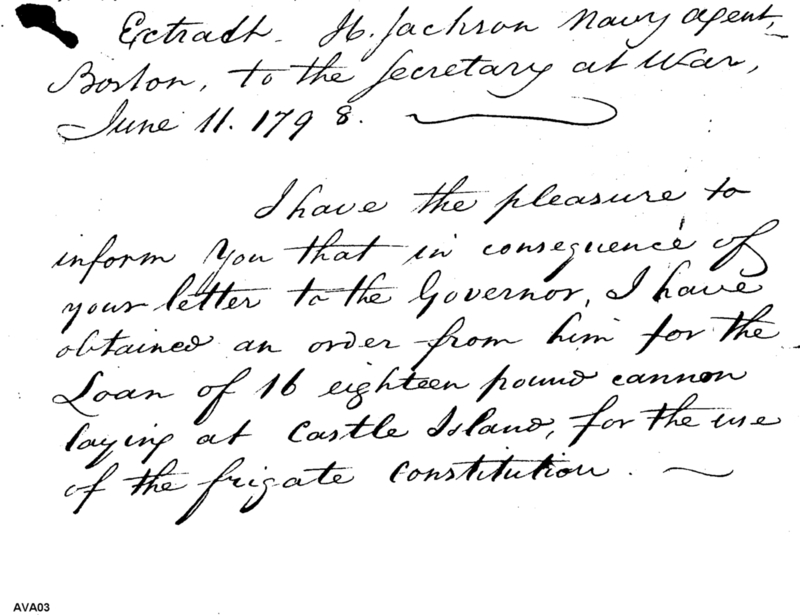 Extract. H. Jackson Navy agent,
Boston, to the Secretary at War,
June 11. 1798.
I have the pleasure to
inform You that in consequence of
your letter to the Governor, I have
obtained an order from him for the
Loan of 16 eighteen pound cannon
laying at Castle Island, for the use
of the frigate Constitution.
AVA03